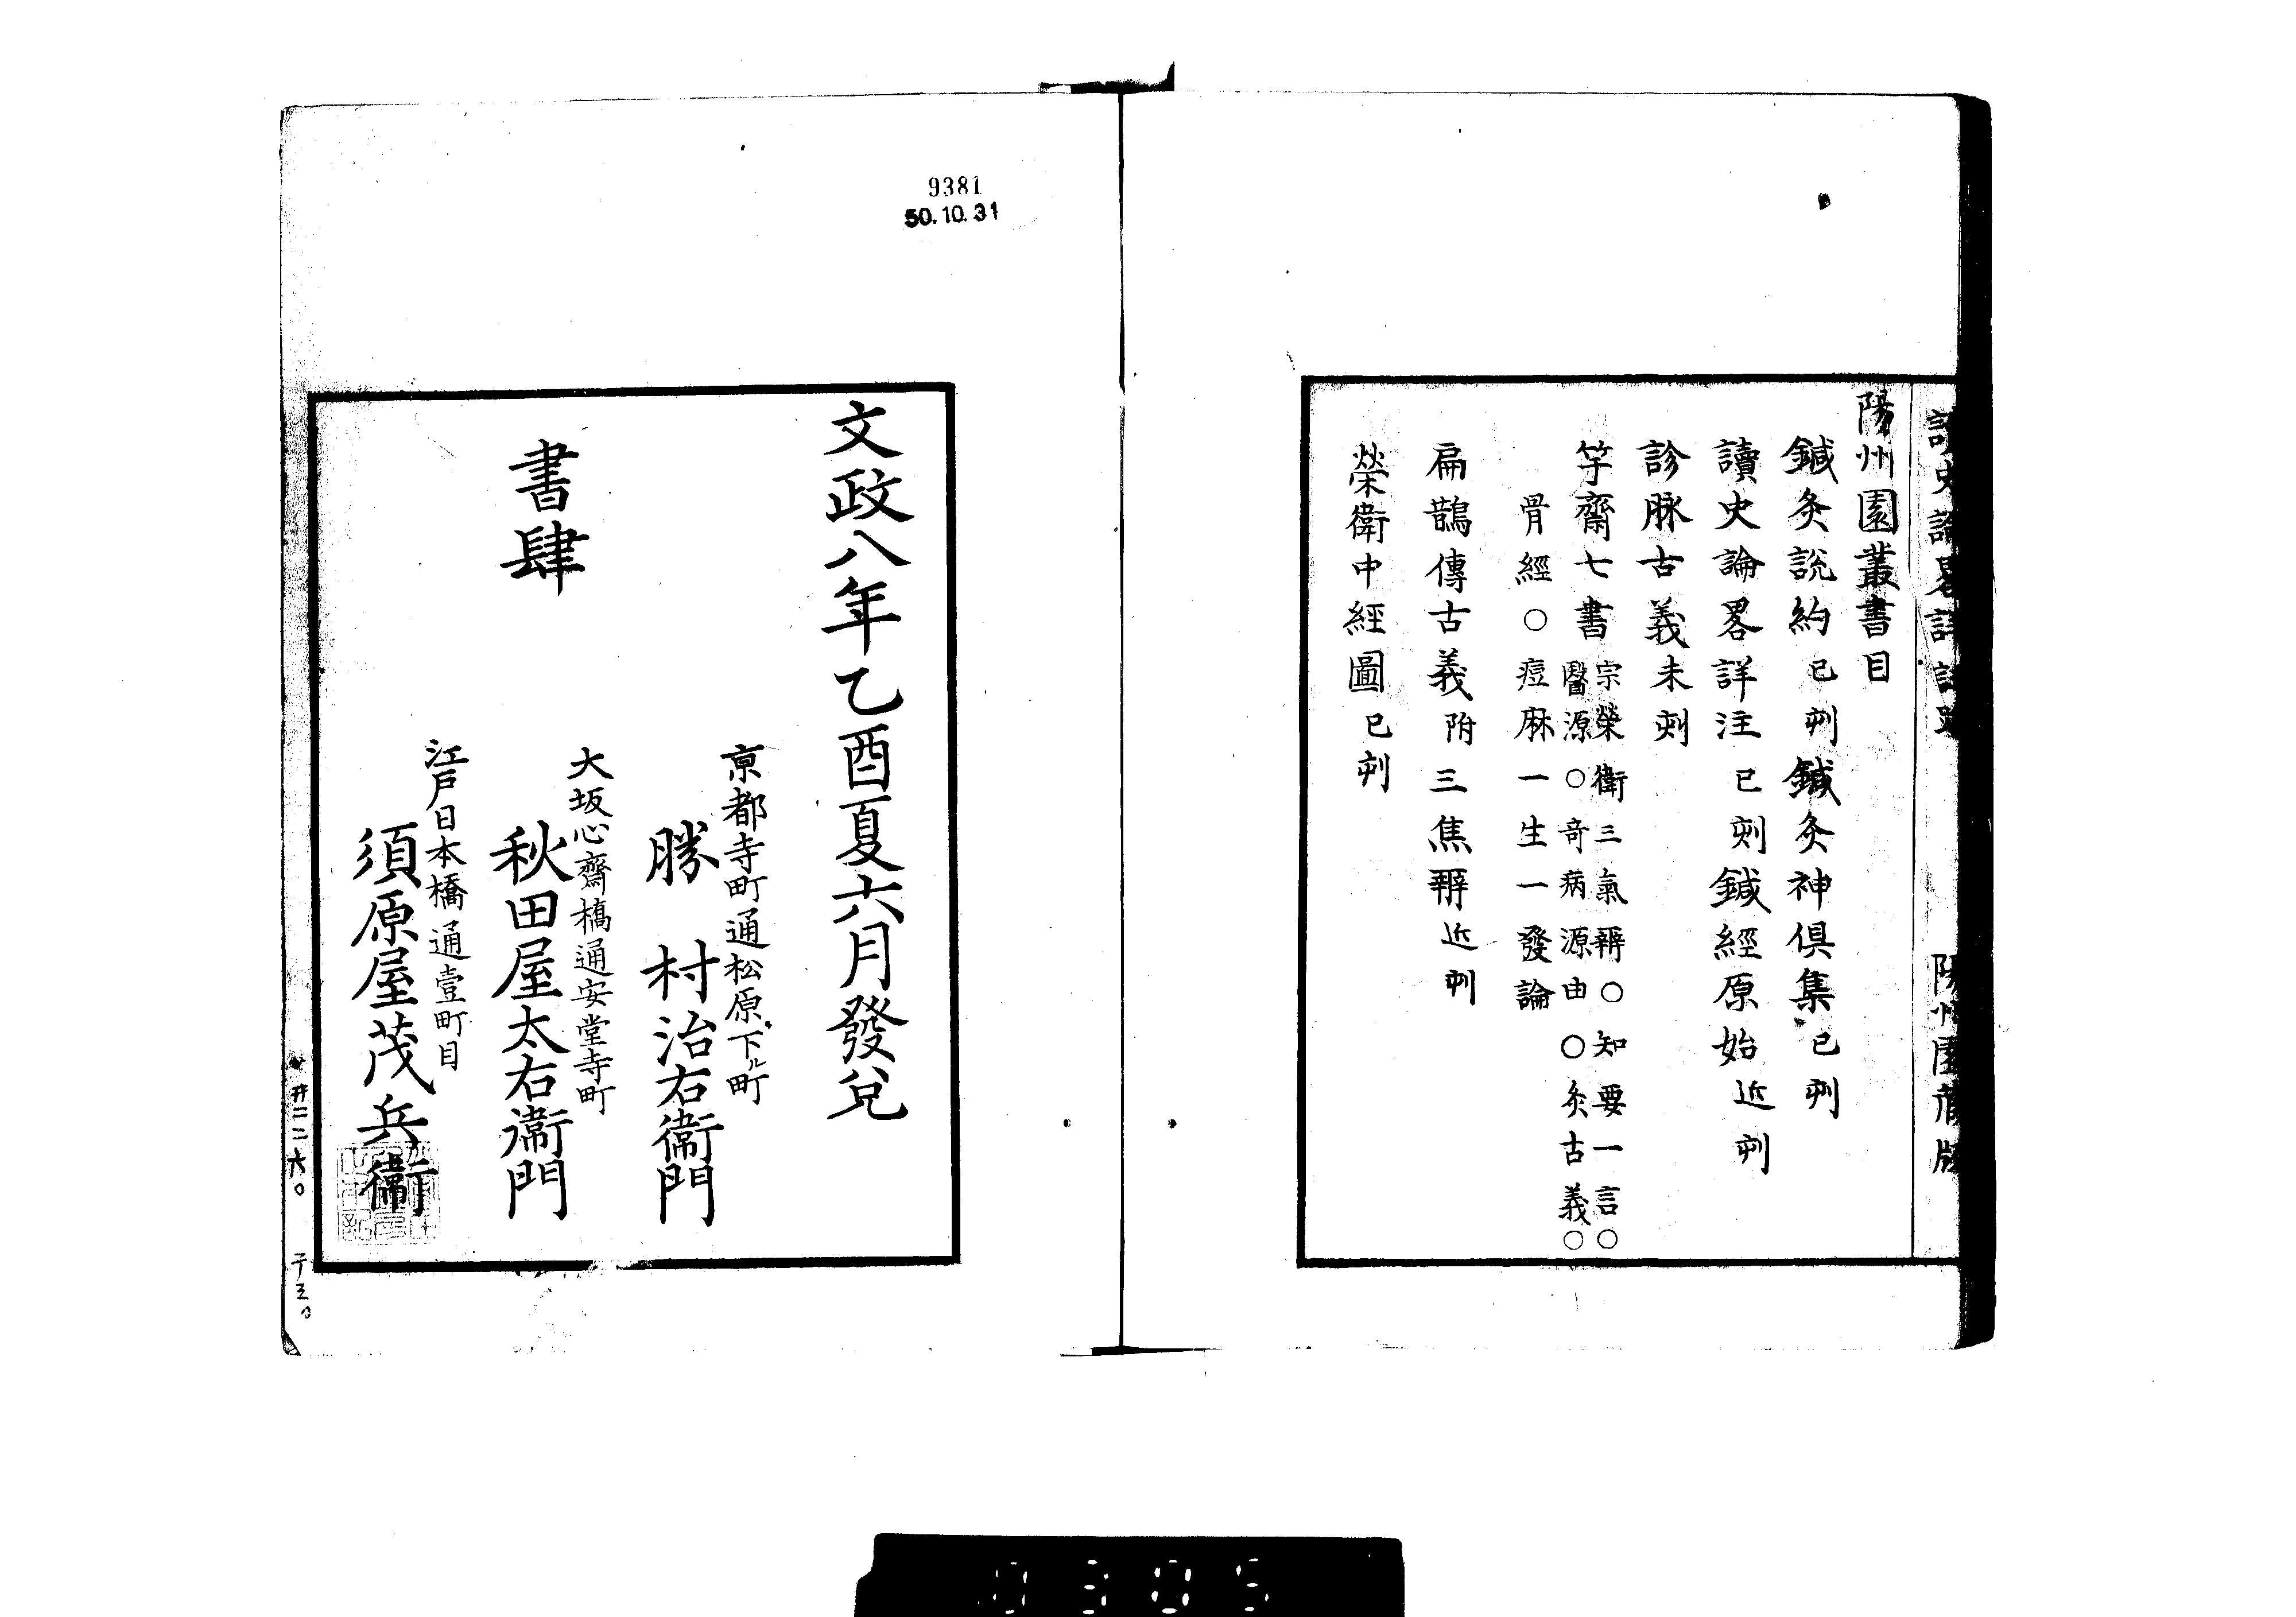 陽州園叢書目
鍼灸説約 已刻 鍼灸神俱集 已刻
讀史論畧詳注 已刻 鍼經原始 近刻
診脉古義 未刻
竽齋七書 宗榮衛三氣辨○知要一言○
醫源○奇病源由○灸古義○
骨經○痘麻一生一發論
扁鵲傳古義 附三焦辨 近刻
榮衛中經圖 已刻
9381
50.10.31
文政八年乙酉夏六月發兌
京都寺町通松原下ル町
勝村治右衞門
書肆
大坂心齋橋通安堂寺町
秋田屋太右衞門
江戸日本橋通壹町目
須原屋茂兵衞
0305